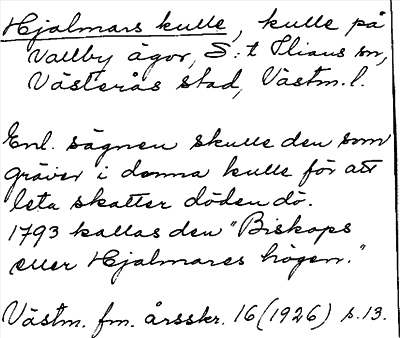 Hjalmars kulle, kulle på
Vallby ägor, S:t Ilians sn,
Västerås stad, Västm. l.
Enl. sägnen skulle den som
gräver i denna kulle för att
leta skatter döden dö.
1793 kallas den "Biskops
eller Hjalmares högen."
Västm. fm. årsskr. 16 (1926) s. 13.